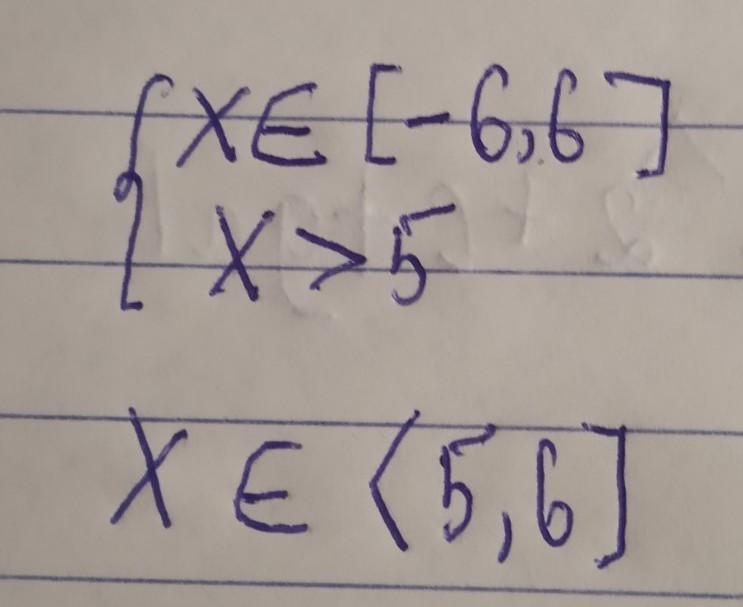 { X ∈ [-6,6]
X > 5
X ∈ ⟨5,6]